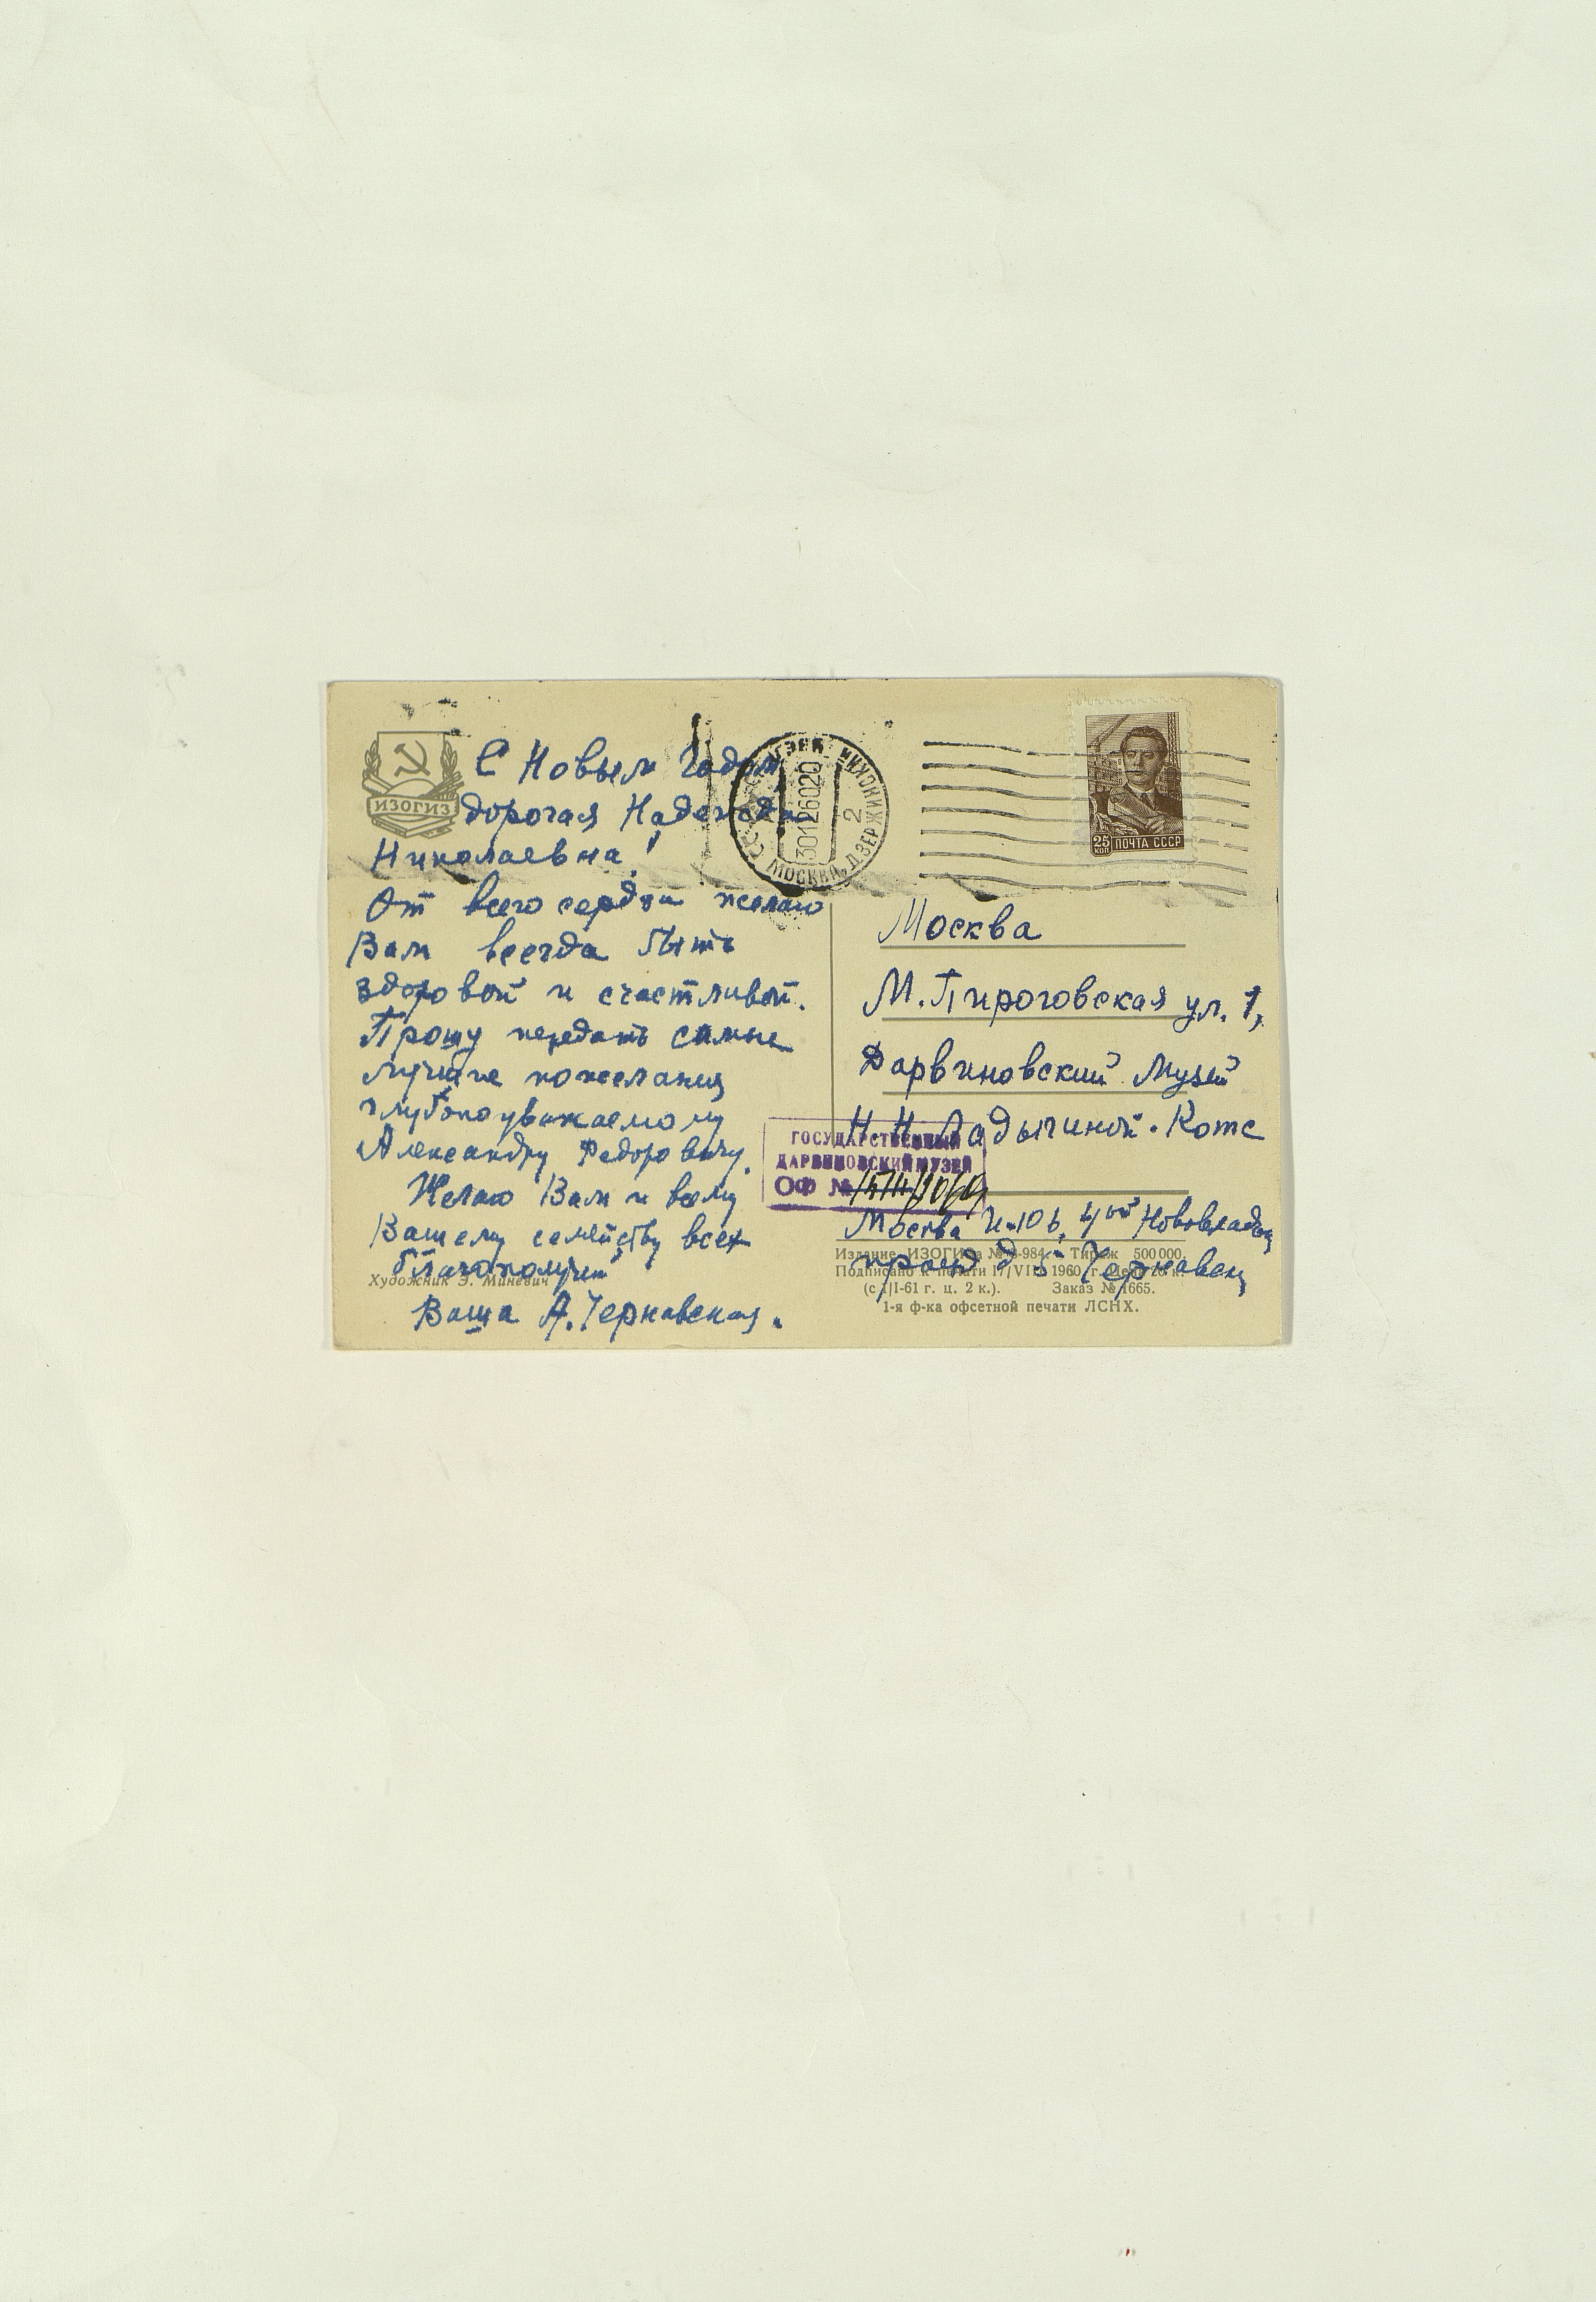 ИЗОГИЗ
С Новым Годом
дорогая Надежда
Николаевна!
От всего сердца желаю
Вам всегда быть
здоровой и счастливой.
Прошу передать самые
лучшие пожелания
глубокоуважаемому
Александру Федоровичу.
Желаю Вам и всему
Вашему семейству всех
благополучий
Художник Э. Миневич
Ваша А. Чернавская.
МОСКВА, ДЗЕРЖИНСКИЙ
2
30126020
25 КОП ПОЧТА СССР
Москва
М. Пироговская ул. 1,
Дарвиновский Музей
Н. Н. Ладыгиной-Котс
ГОСУДАРСТВЕННЫЙ
ДАРВИНОВСКИЙ МУЗЕЙ
ОФ №
Москва И-106,
проезд д 5
Издание ИЗОГИЗа Тираж 500 000.
Подписано к печати 17/VIII 1960 г.
(с 1/I-61 г. ц. 2 к.). Заказ № 1665.
1-я ф-ка офсетной печати ЛСНХ.